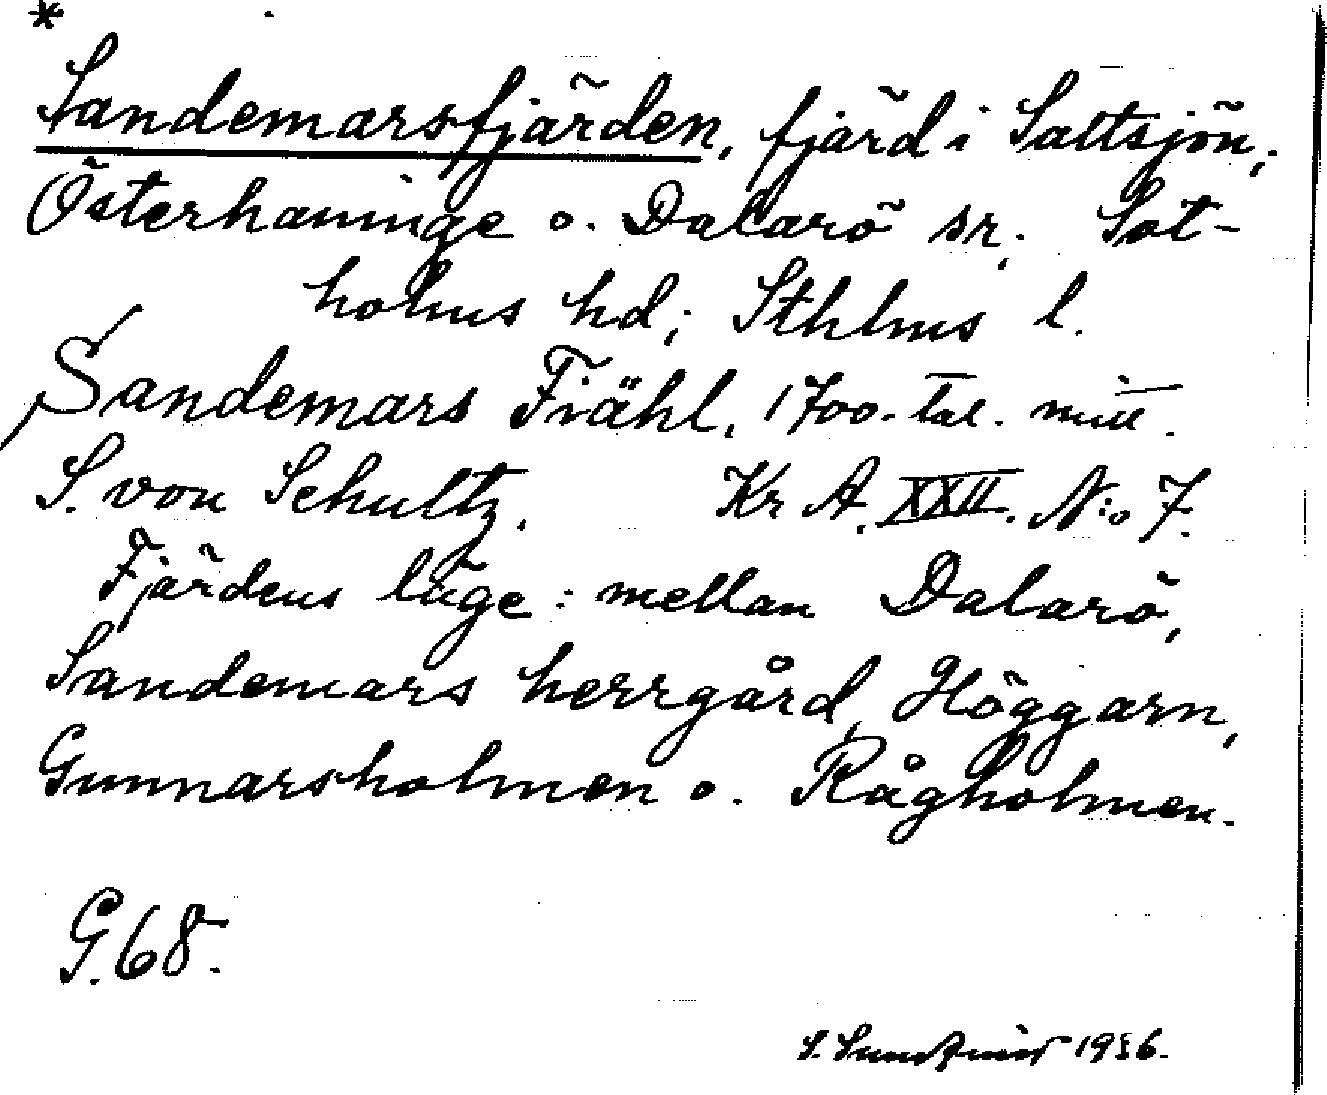 *
Sandemarsfjärden, fjärd i Saltsjön,
Österhaninge o. Dalarö sr, Sot-
holms hd; Sthlms l.
Sandemars Fiähl, 1700-tal. mitt.
S. von Schultz. Kr A. XXII. N:o 7.
Fjärdens läge: mellan Dalarö,
Sandemars herrgård, Höggarn,
Gunnarsholmen o. Rågholmen.
G. 68.
1956.